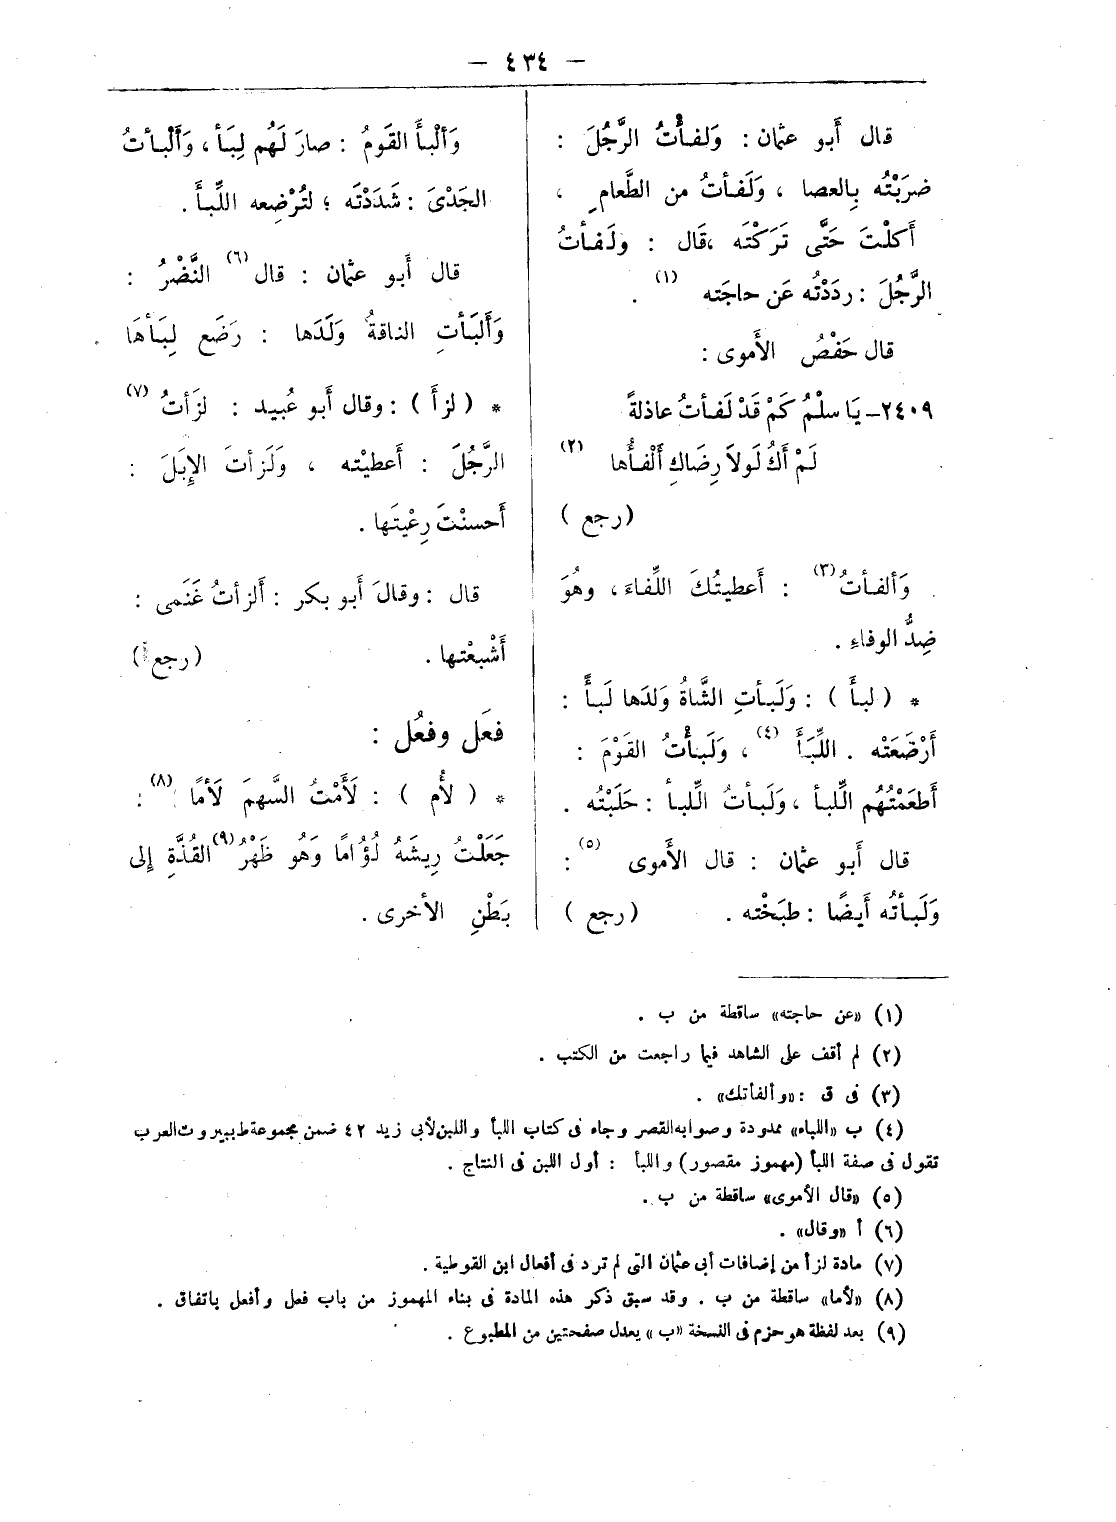 — ٤٣٤ —
قال أَبو عثمان : وَلفـأْتُ الرَّجُلَ :
ضرَبْتُه بِالعصا ، وَلَفـأتُ من الطَّعام ،
أَكلْتَ حَتَّى تَرَكْتَه ،قَال : ولَفـأتُ
الرَّجُلَ : ردَدْتُه عَن حاجَته (١) .
قال حَفْصُ الأَموى :
٢٤٠٩– يَا سلْمُ كَمْ قَدْ لَفـأتُ عاذلةً
لَمْ أَكُ لَولاَ رِضَاكِ أَلْفـأُها (٢)
(رجع )
وَألفـأتُ (٣) : أَعطيتُكَ اللِّفاءَ ، وهُوَ
ضِدُّ الوفاءِ .
* ( لبـأ ) : وَلَبـأتِ الشَّاةُ وَلدَها لَبـأً :
أَرْضَعَتْه . اللِّبَـأَ (٤) ، وَلَبـأْتُ القَوْمَ :
أَطعَمْتُهُم الِّلبـأ ، وَلَبـأتُ الِّلبـأ : حَلَبْتُه .
قال أَبو عثمان : قال الأَموى (٥) :
وَلَبـأتُه أَيضًا : طبَخْته . (رجع )
وَألْبـأَ القَومُ : صارَ لَهُم لِبَـأ ، وَأَلْبـأتُ
الجَدْىَ : شَدَدْتَه ؛ لتُرْضِعه اللِّبـأَ .
قال أَبو عثمان : قال (٦) النَّضْرُ :
وَأَلبَـأتِ الناقةُ وَلَدَها : رَضَع لِبَـأهَا .
* ( لزأ ) : وقال أَبو عُبيد : لزَأتُ (٧)
الرَّجُلَ : أَعطيْته ، وَلَزأتَ الإِبَلَ :
أَحسنْتَ رِعْيتَها .
قال : وقالَ أَبو بكر : أَلزأتُ غَنَمى :
أَشْبعْتها . (رجع)
فعَل وفعُل :
* ( لأُم ) : لَأَمْتُ السَّهمَ لَأمًا (٨) :
جَعَلْتُ رِيشَهُ لُؤَامًا وَهُو ظَهْرُ (٩) القُذَّةِ إلى
بَطْنِ الأخرى .
(١) «عن حاجته» ساقطة من ب .
(٢) لم أقف على الشاهد فيما راجعت من الكتب .
(٣) فى ق : «وألفأتك» .
(٤) ب «اللباء» ممدودة وصوابه القصر وجاء فى كتاب اللبأ واللبن لأبى زيد ٤٢ ضمن مجموعة ط بيروت العرب
تقول فى صفة اللبأ (مهموز مقصور) واللبأ : أول اللبن فى النتاج .
(٥) «قال الأموى» ساقطة من ب .
(٦) أ «وقال» .
(٧) مادة لزأ من إضافات أبى عثمان التى لم ترد فى أفعال ابن القوطية .
(٨) «لأما» ساقطة من ب . وقد سبق ذكر هذه المادة فى بناء المهموز من باب فعل وأفعل باتفاق .
(٩) بعد لفظة هو حزم فى النسخة «ب» يعدل صفحتين من المطبوع .